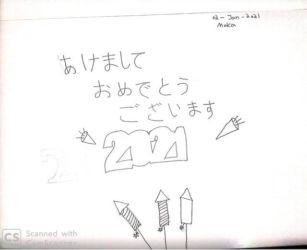 02-Jan-2021
Moka
あけまして
おめでとう
ございます
2021
CS Scanned with
CamScanner